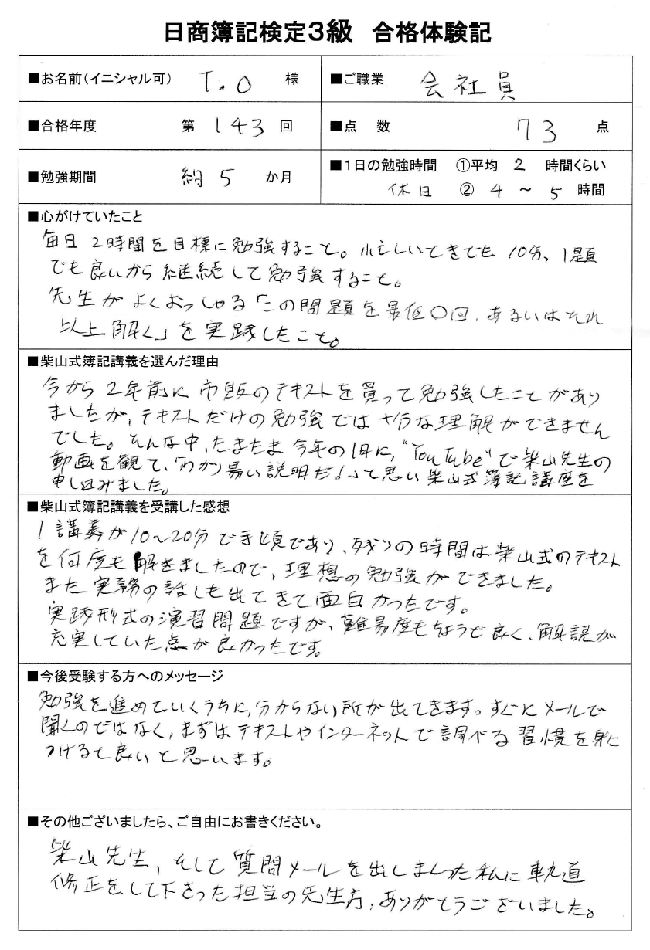 日商簿記検定3級 合格体験記
■お名前(イニシャル可) T.O 様 ■ご職業 会社員
■合格年度 第 143 回 ■点 数 73 点
■勉強期間 約 5 か月 ■1日の勉強時間 ①平均 2 時間くらい
休日 ② 4 ～ 5 時間
■心がけていたこと
毎日2時間を目標に勉強すること。忙しいときでも10分、1題
でも良いから継続して勉強すること。
先生がよくおっしゃる「この問題を最低○回、あるいはそれ
以上解く」を実践したこと。
■柴山式簿記講義を選んだ理由
今から2年前に市販のテキストを買って勉強したことがあり
ましたが、テキストだけの勉強では十分な理解ができません
でした。そんな中、たまたま今年の1月に、"YouTube"で柴山先生の
動画を観て、「分かり易い説明だ!」って思い柴山式簿記講座を
申し込みました。
■柴山式簿記講義を受講した感想
1講義が10～20分で手頃であり、残りの時間は柴山式のテキスト
を何度も解きましたので、理想の勉強ができました。
また実務の話しも出てきて面白かったです。
実践形式の演習問題ですが、難易度もちょうど良く、解説が
充実していた点が良かったです。
■今後受験する方へのメッセージ
勉強を進めていくうちに、分からない所が出てきます。すぐにメールで
聞くのではなく、まずはテキストやインターネットで調べる習慣を身に
つけると良いと思います。
■その他ございましたら、ご自由にお書きください。
柴山先生、そして質問メールを出しました私に軌道
修正をして下さった担当の先生方、ありがとうございました。